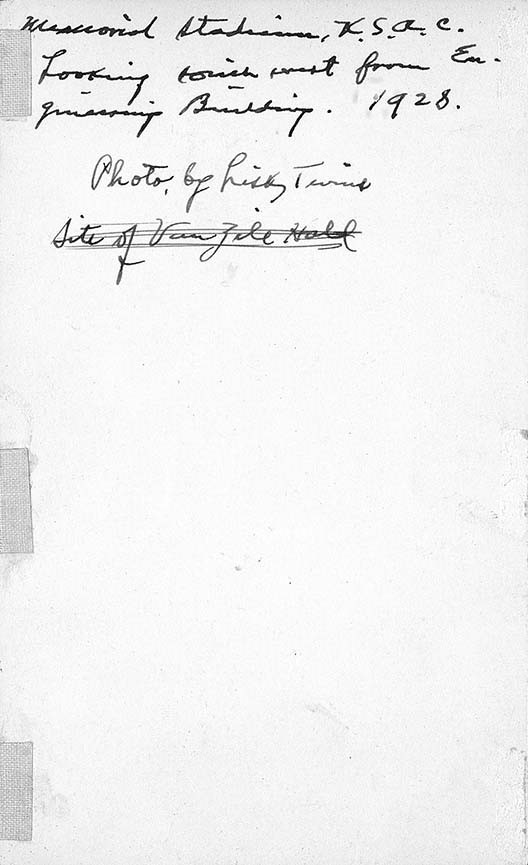 Memorial Stadium, K.S.A.C.
Looking south west from En-
gineering Building. 1928.
Photo, by Lisk, Twins
Site of Van Zile Hall